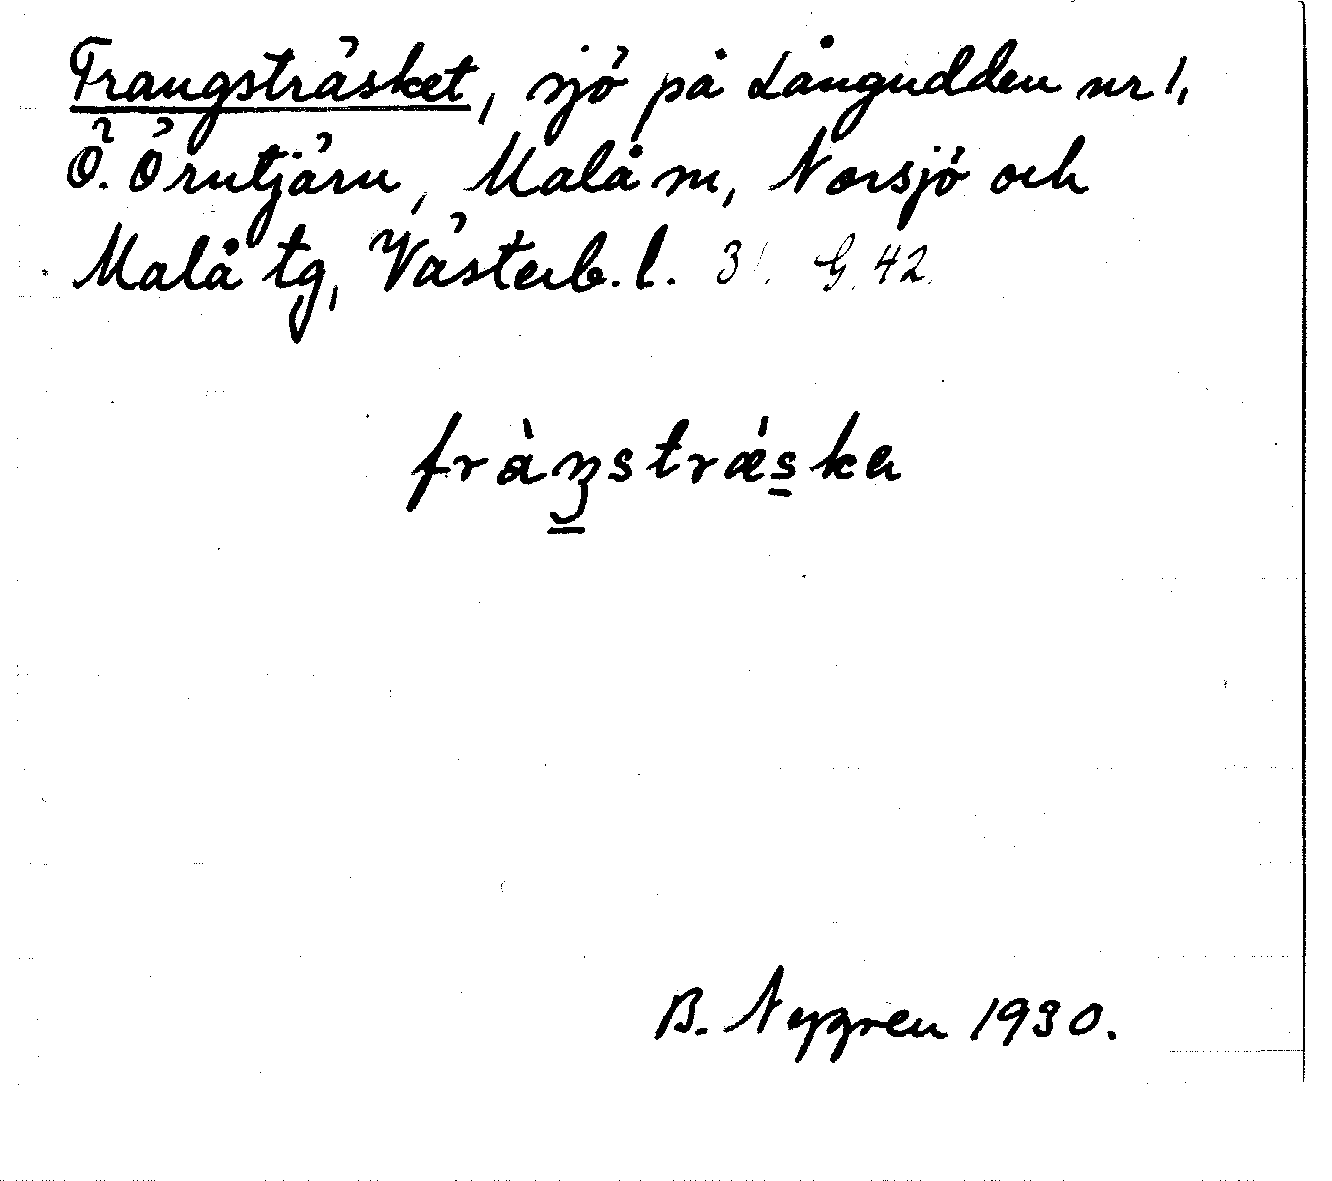 Frangsträsket, sjö på Långudden nr 1,
Ö. Örnträsk, Malå sn, Norsjö och
Malå tg, Västerb. l. 31 G 42
fràŋsträ́ska
B. Nygren 1930.